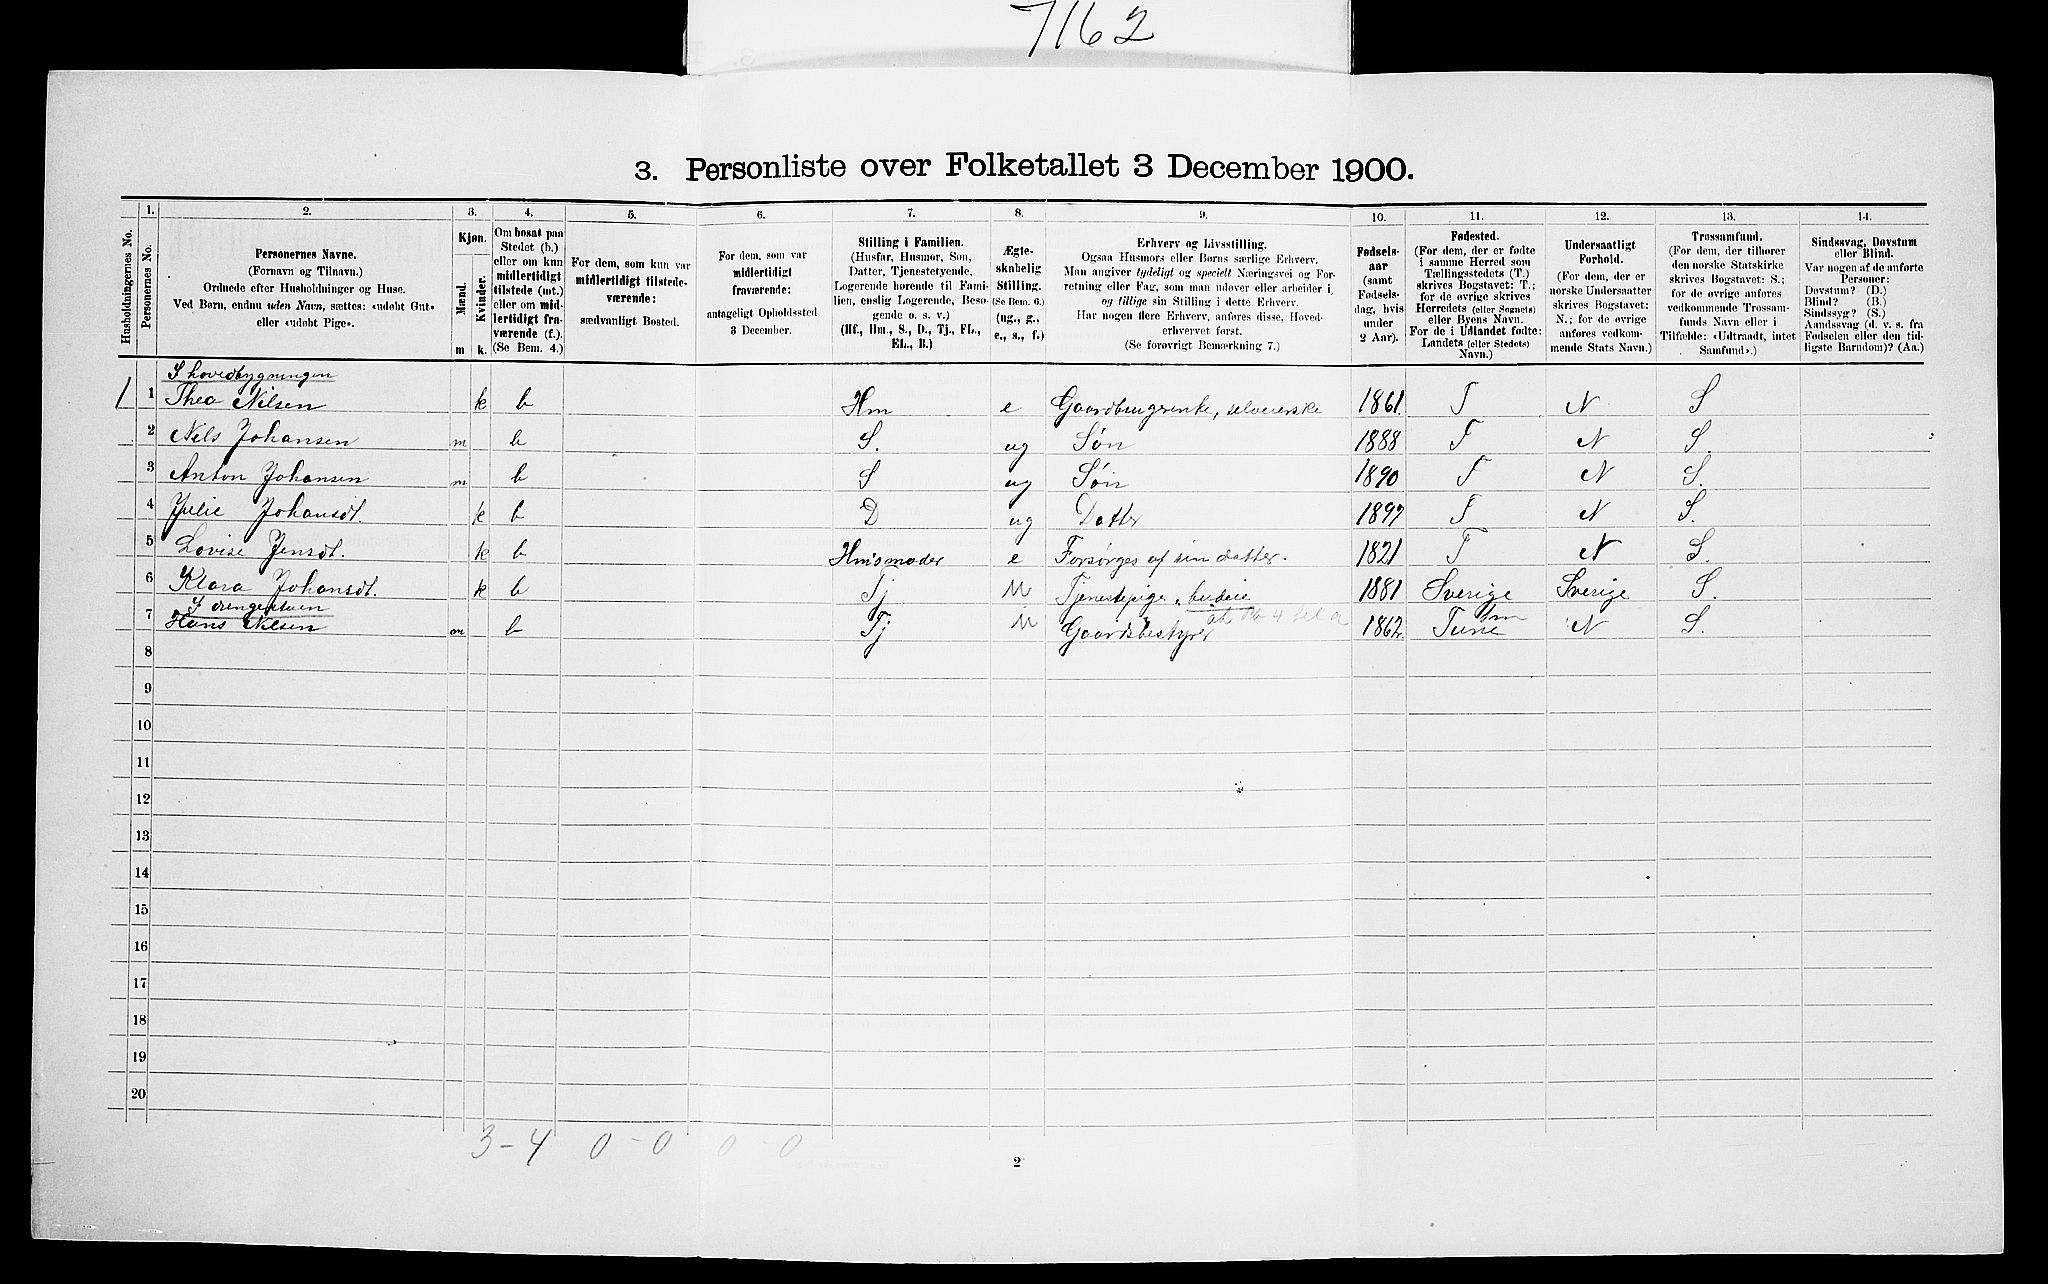 7162
3. Personliste over Folketallet 3 December 1900.
Husholdningernes No.
1.
Personernes No.
2.
Personernes Navne.
(Fornavn og Tilnavn.)
Ordnede efter Husholdninger og Huse.
Ved Børn, endnu uden Navn, sættes: «udøbt Gut»
eller «udøbt Pige».
3.
Kjøn.
Mænd.
Kvinder.
m k.
4.
Om bosat paa
Stedet (b.)
eller om kun
midlertidigt
tilstede (mt.)
eller om mid-
lertidigt fra-
værende (f.).
(Se Bem. 4.)
5.
For dem, som kun var
midlertidigt tilstede-
værende:
sædvanligt Bosted.
6.
For dem, som var
midlertidigt
fraværende:
antageligt Opholdssted
3 December.
7.
Stilling i Familien.
(Husfar, Husmor, Søn,
Datter, Tjenestetyende,
Logerende hørende til Fami-
lien, enslig Logerende, Besø-
gende o. s. v.)
(Hf., Hm., S., D., Tj., FL.,
EL., B.)
8.
Ægte-
skabelig
Stilling.
(Se Bem. 6.)
(ug., g.,
e., s., f.)
9.
Erhverv og Livsstilling.
Ogsaa Husmors eller Børns særlige Erhverv.
Man angiver tydeligt og specielt Næringsvei og For-
retning eller Fag, som man udøver eller arbeider i,
og tillige sin Stilling i dette Erhverv.
Har nogen flere Erhverv, anføres disse, Hoved-
erhvervet først.
(Se forøvrigt Bemærkning 7.)
10.
Fødsels-
aar
(samt
Fødsels-
dag, hvis
under
2 Aar).
11.
Fødested.
(For dem, der er fødte
i samme Herred som
Tællingsstedets (T.)
skrives Bogstavet: T.;
for de øvrige skrives
Herredets (eller Sognets)
eller Byens Navn.
For de i Udlandet fødte:
Landets (eller Stedets)
Navn.)
12.
Undersaatligt
Forhold.
(For dem, der er
norske Undersaatter
skrives Bogstavet:
N.; for de øvrige
anføres vedkom-
mende Stats Navn.)
13.
Trossamfund.
(For dem, der tilhører
den norske Statskirke
skrives Bogstavet: S.;
for de øvrige anføres
vedkommende Trossam-
funds Navn eller i
Tilfælde: «Udtraadt, intet
Samfund».)
14.
Sindssvag, Døvstum
eller Blind.
Var nogen af de anførte
Personer:
Døvstum? (D.)
Blind? (B.)
Sindssyg? (S.)
Aandssvag (d. v. s. fra
Fødselen eller den tid-
ligste Barndom)? (Aa.)
I hovedbygningen
1 1 Thea Nilsen k b Hm e Gaardbrugerenke, selveierske 1861. T N S
2 Nils Johansen m b S. ug Søn 1888 T N S.
3 Anton Johansen m b S ug Søn 1890 T N S.
4 Julie Johansdt. k b D ug Datter 1897 T N S.
5 Lovise Jensdt. k b Hm's moder e Forsørges af sin datter. 1821 T N S.
6 Klara Johansdt. k b Tj U Tjenestepige, budeie 1881 Sverige Sverige S.
I drengestuen
7 Hans Nilsen m b Tj U Gaardsbestyrer 1862. Tune N S.
8
9
10
11
12
13
14
15
16
17
18
19
20
3 - 4 0 - 0 0 - 0
2